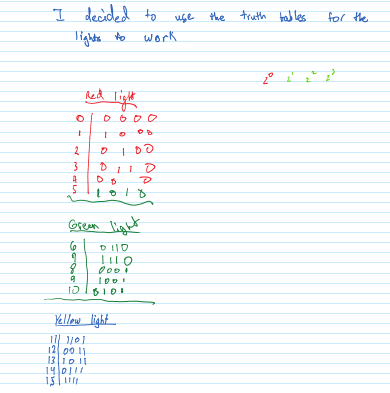 I decided to use the truth tables for the
lights to work
2⁰ 2¹ 2² 2³
Red light
0 | 0 0 0 0
1 | 1 0 0 0
2 | 0 1 0 0
3 | 0 1 1 0
4 | 0 0 0
5 | 1 0 1 0
Green light
6 | 0 1 1 0
7 | 1 1 1 0
8 | 0 0 0 1
9 | 1 0 0 1
10 | 0 1 0 1
Yellow light
11 | 1 1 0 1
12 | 0 0 1 1
13 | 1 0 1 1
14 | 0 1 1 1
15 | 1 1 1 1